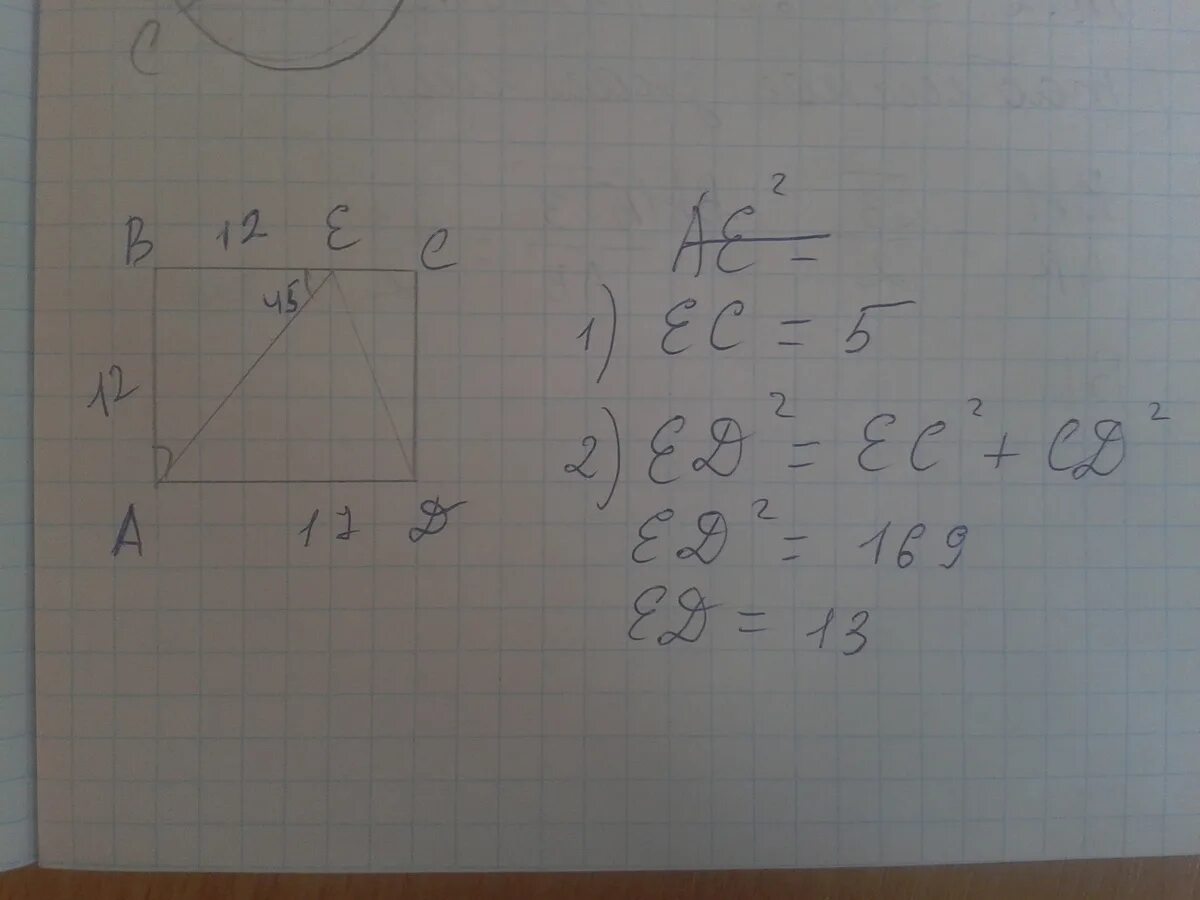 C
B 12 E C
45
12
A 17 D
AE² =
1) EC = 5
2) ED² = EC² + CD²
ED² = 169
ED = 13